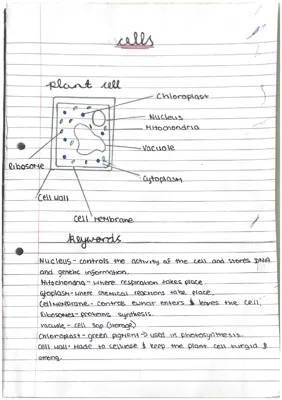 cells
plant cell
Chloroplast
Nucleus
Mitochondria
Vacuole
Ribosome
Cytoplasm
Cell wall
Cell membrane
Keywords
Nucleus - controls the activity of the cell and stores DNA
and genetic information.
Mitochondria - where respiration takes place
Cytoplasm - where chemical reactions take place.
Cell membrane - controls what enters & leaves the cell.
Ribosomes - proteins synthesis.
Vacuole - cell sap (storage)
Chloroplast - green pigment → used in photosynthesis.
Cell wall - Made to cellulose & keep the plant cell turgid &
strong.